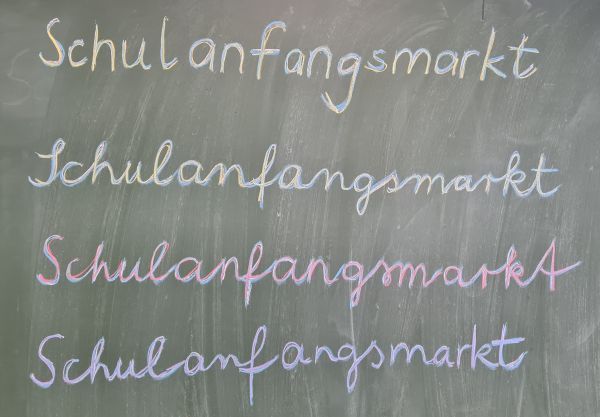 Schulanfangsmarkt
Schulanfangsmarkt
Schulanfangsmarkt
Schulanfangsmarkt